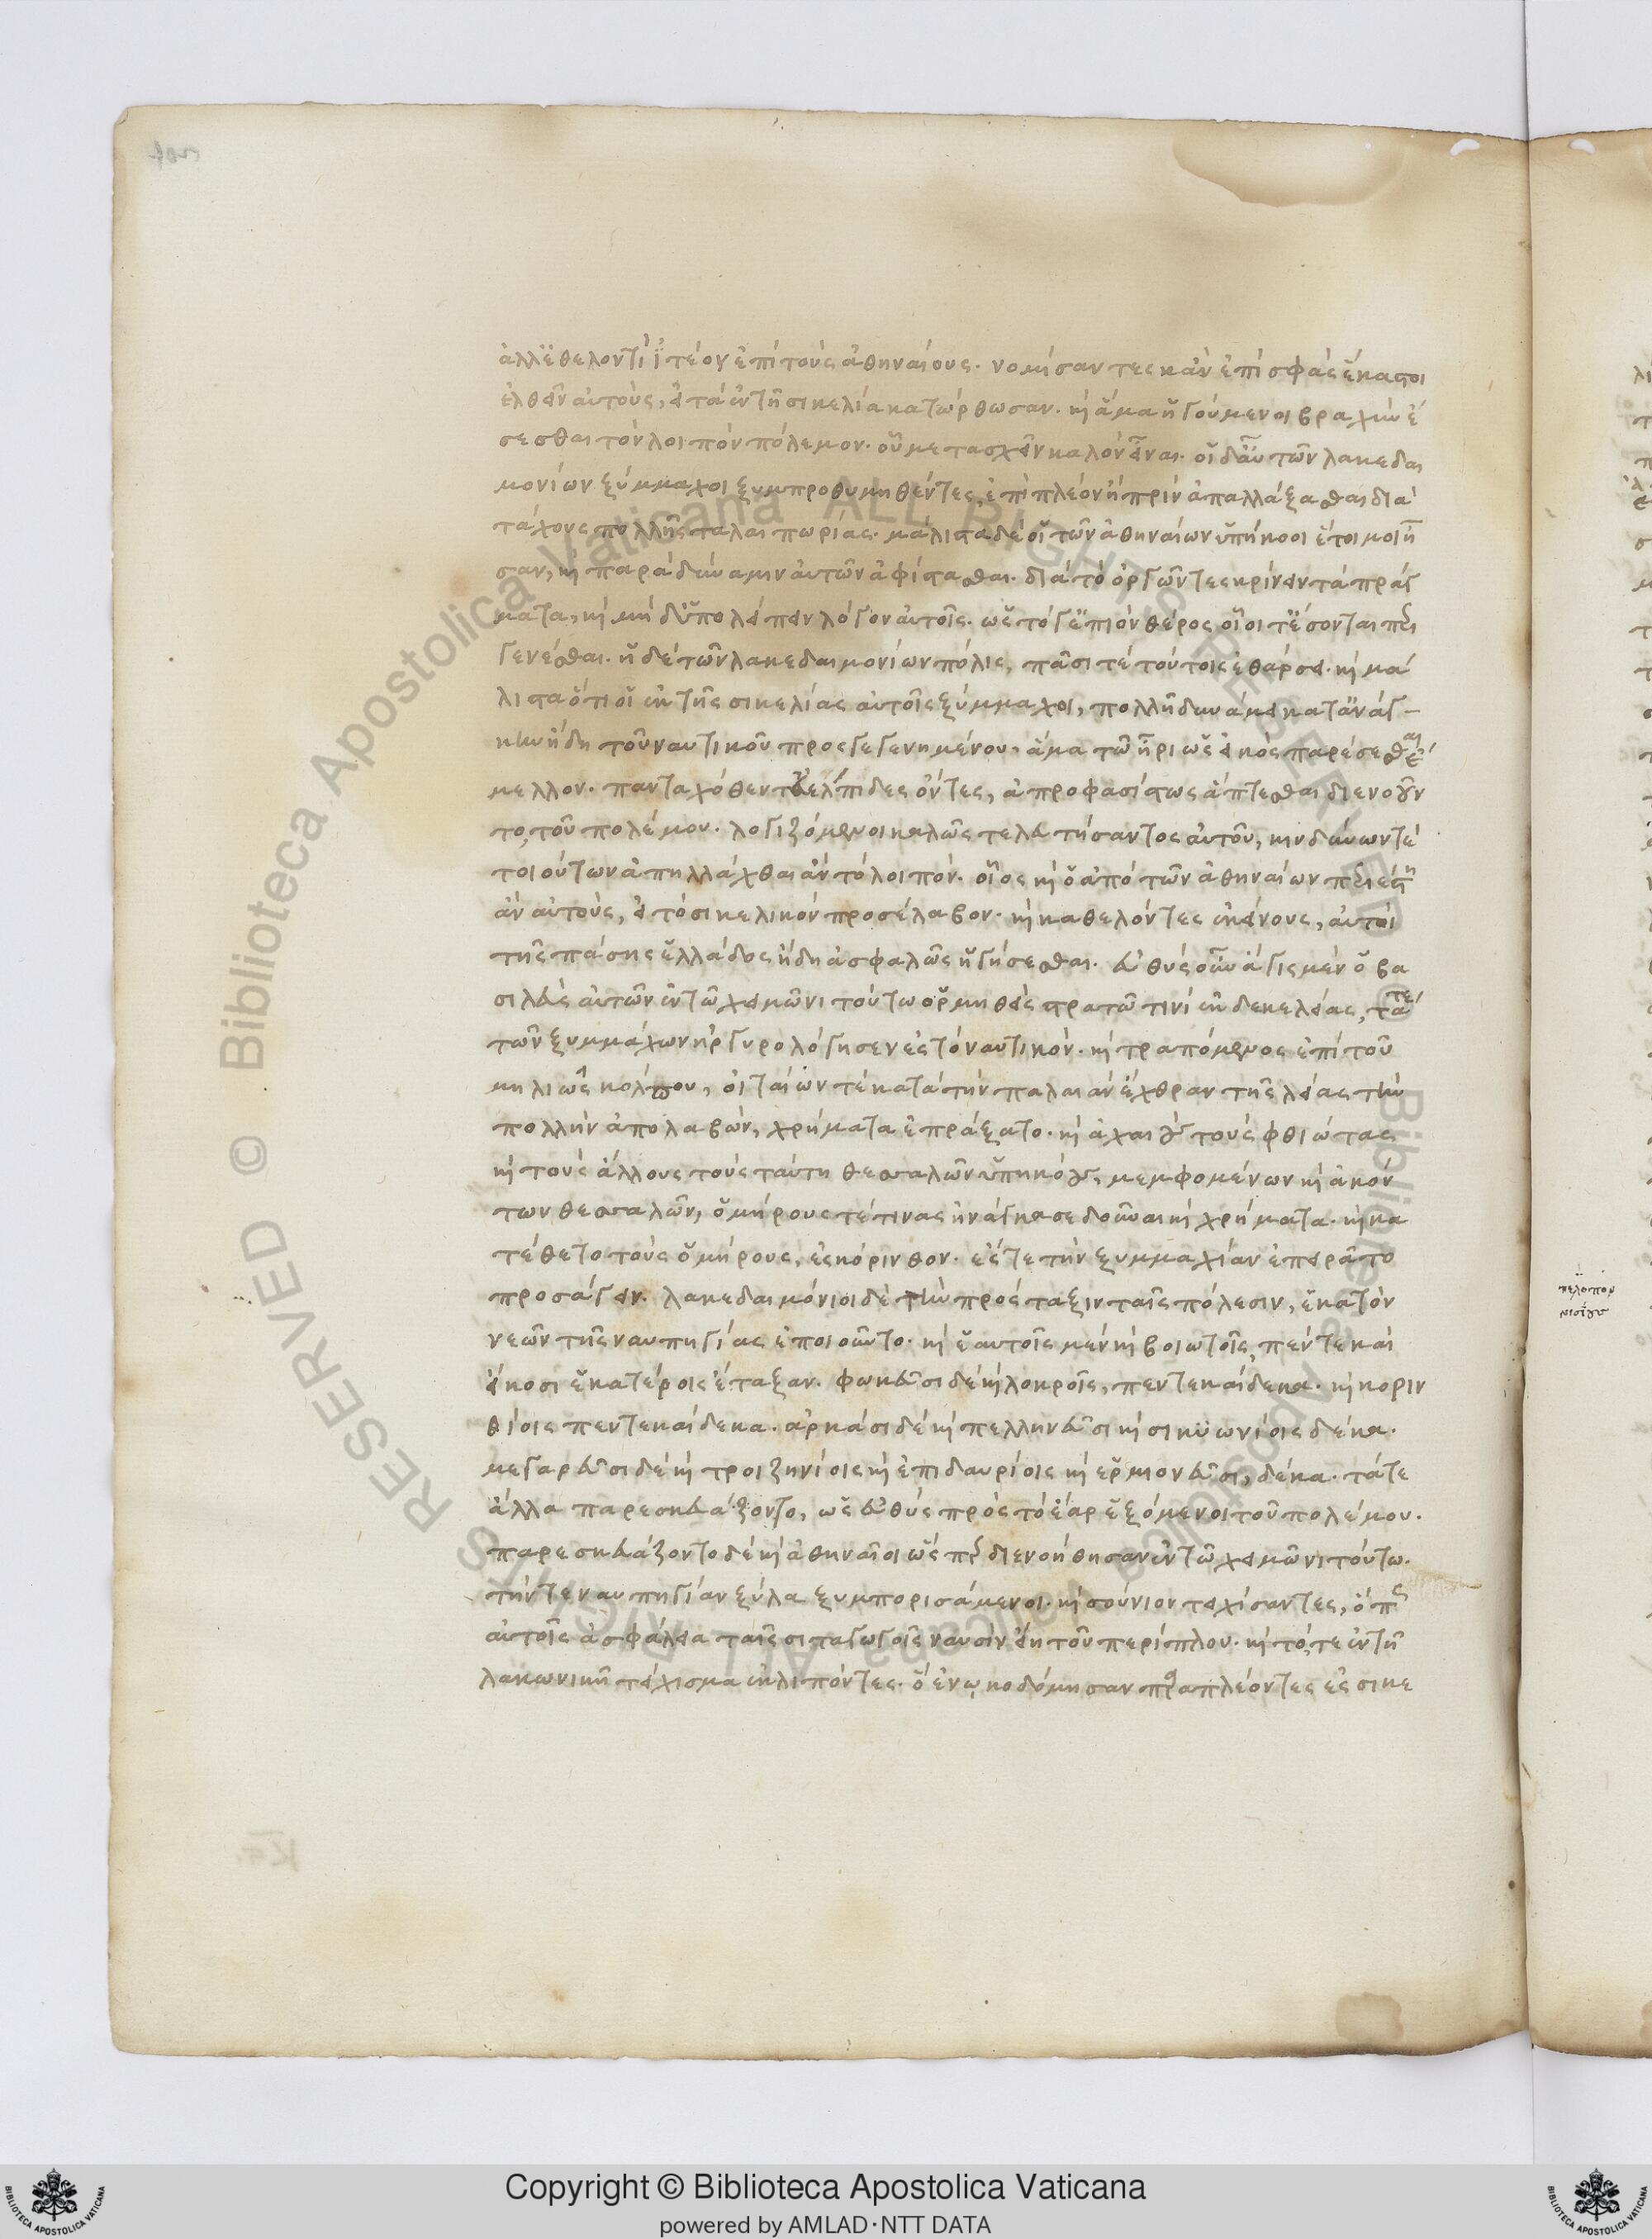 ἀλλ' ἐθελοντὶ ἰτέον ἐπὶ τοὺς ἀθηναίους. νομίσαντες κἂν ἐπὶ σφᾶς ἕκαστοι
ἐλθεῖν αὐτοὺς, εἰ τὰ ἐν τῆ σικελία κατώρθωσαν. καὶ ἅμα ἡγούμενοι βραχὺν ἔ
σεσθαι τὸν λοιπὸν πόλεμον. οὗ μετασχεῖν καλὸν εἶναι. οἱ δ' αὖ τῶν λακεδαι
μονίων ξύμμαχοι ξυμπροθυμηθέντες, ἐπὶ πλέον ἢ πρὶν ἀπαλλάξασθαι διὰ
τάχους πολλῆς ταλαιπωρίας. μάλιστα δὲ οἱ τῶν ἀθηναίων ὑπήκοοι ἕτοιμοι ἦ
σαν, καὶ παρὰ δύναμιν αὐτῶν ἀφίστασθαι. διὰ τὸ ὀργῶντες κρίνειν τὰ πράγ
ματα, καὶ μηδ' ὑπολείπειν λόγον αὐτοῖς. ὡς τό γ' ἐπιὸν θέρος οἷοί τ' ἔσονται περι
γενέσθαι. ἡ δὲ τῶν λακεδαιμονίων πόλις, πᾶσί τε τούτοις ἐθάρσει. καὶ μά
λιστα ὅτι οἱ ἐκ τῆς σικελίας αὐτοῖς ξύμμαχοι, πολλῆ δυνάμει κατ' ἀνάγ-
κην ἤδη τοῦ ναυτικοῦ προσγεγενημένου, ἅμα τῶ ἦρι ὡς εἰκὸς παρέσεσθαι ἔ
μελλον. πανταχόθεν τε εὐέλπιδες ὄντες, ἀπροφασίστως ἅπτεσθαι διενοοῦν
το, τοῦ πολέμου. λογιζόμενοι καλῶς τελευτήσαντος αὐτοῦ, κινδύνων τὲ
τοιούτων ἀπηλλάχθαι ἂν τὸ λοιπόν. οἷος καὶ ὁ ἀπὸ τῶν ἀθηναίων περιέστη
ἂν αὐτοὺς, εἰ τὸ σικελικὸν προσέλαβον. καὶ καθελόντες ἐκείνους, αὐτοὶ
τῆς πάσης ἑλλάδος ἤδη ἀσφαλῶς ἡγήσεσθαι. εὐθὺς οὖν ἆγις μὲν ὁ βα
σιλεὺς αὐτῶν ἐν τῶ χειμῶνι τούτω ὁρμηθεὶς στρατῶ τινὶ ἐκ δεκελείας, τά τε
τῶν ξυμμάχων ἠργυρολόγησεν ἐς τὸ ναυτικόν. καὶ τραπόμενος ἐπὶ τοῦ
μηλιῶς κόλπου, οἰταίων τὲ κατὰ τὴν παλαιὰν ἔχθραν τῆς λείας τὴν
πολλὴν ἀπολαβὼν, χρήματα ἐπράξατο. καὶ ἀχαιοὺς τοὺς φθιώτας
καὶ τοὺς ἄλλους τοὺς ταύτη θεσσαλῶν ὑπηκόους, μεμφομένων καὶ ἀκόν
των θεσσαλῶν, ὁμήρους τέ τινας ἠνάγκασε δοῦναι καὶ χρήματα. καὶ κα
τέθετο τοὺς ὁμήρους, ἐς κόρινθον. ἔς τε τὴν ξυμμαχίαν ἐπειρᾶτο
προσάγειν. λακεδαιμόνιοι δὲ τὴν πρόσταξιν ταῖς πόλεσιν, ἑκατὸν
νεῶν τῆς ναυπηγίας ἐποιοῦντο. καὶ ἑαυτοῖς μὲν καὶ βοιωτοῖς, πέντε καὶ
εἴκοσι ἑκατέροις ἔταξαν. φωκεῦσι δὲ καὶ λοκροῖς, πεντεκαίδεκα. καὶ κοριν
θίοις πεντεκαίδεκα. ἀρκάσι δὲ καὶ πελληνεῦσι καὶ σικυωνίοις δέκα.
μεγαρεῦσι δὲ καὶ τροιζηνίοις καὶ ἐπιδαυρίοις καὶ ἑρμιονεῦσι, δέκα. τά τε
ἄλλα παρεσκευάζοντο, ὡς εὐθὺς πρὸς τὸ ἔαρ ἑξόμενοι τοῦ πολέμου.
παρεσκευάζοντο δὲ καὶ ἀθηναῖοι ὥσπερ διενοήθησαν ἐν τῶ χειμῶνι τούτω.
τήν τε ναυπηγίαν ξύλα ξυμπορισάμενοι. καὶ σούνιον τειχίσαντες, ὅπως
αὐτοῖς ἀσφάλεια ταῖς σιταγωγοῖς ναυσὶν εἴη τοῦ περίπλου. καὶ τό, τε ἐν τῆ
λακωνικῆ τείχισμα ἐκλιπόντες. ὃ ἐνωκοδόμησαν παραπλέοντες ἐς σικε
πελοπον
νισίους
© Biblioteca Apostolica Vaticana ALL RIGHTS RESERVED
© Biblioteca Apostolica Vaticana ALL RIGHTS RESERVED
Copyright © Biblioteca Apostolica Vaticana
powered by AMLAD·NTT DATA
BIBLIOTECA APOSTOLICA VATICANA
BIBLIOTECA APOSTOLICA VATICANA